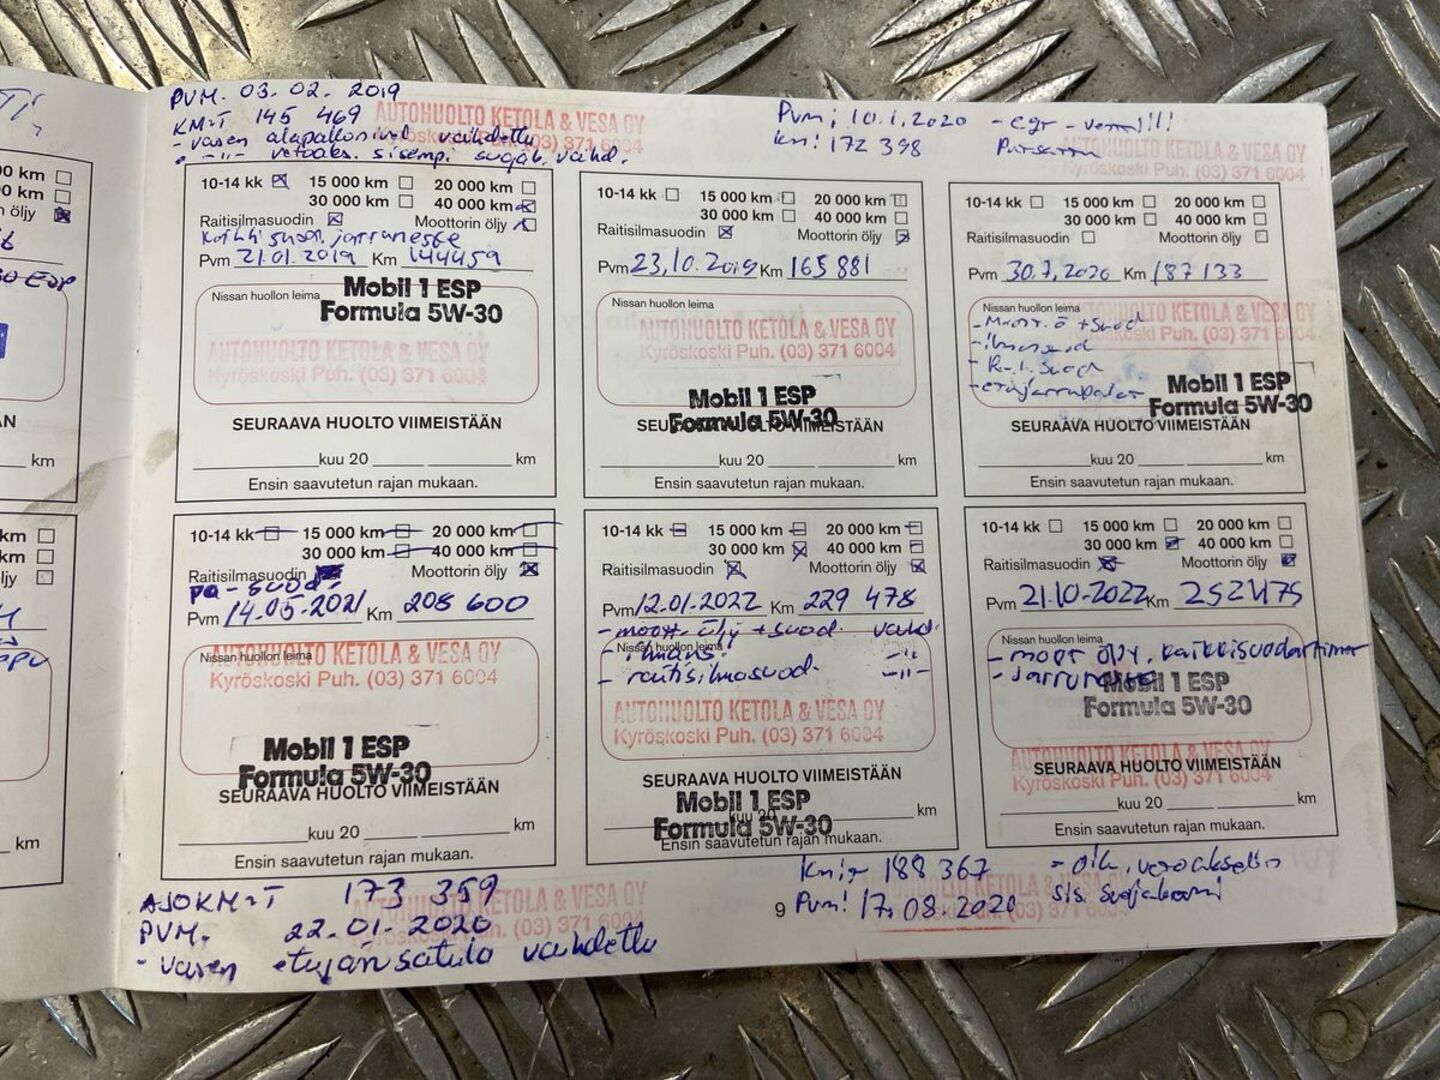 PVM. 03. 02. 2019
KM:T 145 469
AUTOHUOLTO KETOLA & VESA OY
Kyröskoski Puh. (03) 371 6004
- vasen alapallonivel vaihdettu
- -"- vetoaks. sisempi suojak. vaihd.
Pvm; 10.1.2020 - egr - venttiili
km: 172 398
AUTOHUOLTO KETOLA & VESA OY
Kyröskoski Puh. (03) 371 6004
00 km
00 km
n öljy
10-14 kk 15 000 km 20 000 km
30 000 km 40 000 km
Raitisilmasuodin Moottorin öljy
Kaikki suod. jarruneste
Pvm 21.01.2019 Km 144459
Nissan huollon leima
Mobil 1 ESP
Formula 5W-30
AUTOHUOLTO KETOLA & VESA OY
Kyröskoski Puh. (03) 371 6004
SEURAAVA HUOLTO VIIMEISTÄÄN
kuu 20 km
Ensin saavutetun rajan mukaan.
10-14 kk 15 000 km 20 000 km
30 000 km 40 000 km
Raitisilmasuodin Moottorin öljy
Pvm 23.10.2019 Km 165 881
Nissan huollon leima
AUTOHUOLTO KETOLA & VESA OY
Kyröskoski Puh. (03) 371 6004
Mobil 1 ESP
Formula 5W-30
SEURAAVA HUOLTO VIIMEISTÄÄN
kuu 20 km
Ensin saavutetun rajan mukaan.
10-14 kk 15 000 km 20 000 km
30 000 km 40 000 km
Raitisilmasuodin Moottorin öljy
Pvm 30.7.2020 Km 187 133
Nissan huollon leima
AUTOHUOLTO KETOLA & VESA OY
Kyröskoski Puh. (03) 371 6004
- Moott. ö + suod
- R.i. Suod
- etujarrupalat
Mobil 1 ESP
Formula 5W-30
SEURAAVA HUOLTO VIIMEISTÄÄN
kuu 20 km
Ensin saavutetun rajan mukaan.
km
km
km
ljy
km
10-14 kk 15 000 km 20 000 km
30 000 km 40 000 km
Raitisilmasuodin Moottorin öljy
pa-suod.
Pvm 14.05.2021 Km 208 600
Nissan huollon leima
AUTOHUOLTO KETOLA & VESA OY
Kyröskoski Puh. (03) 371 6004
Mobil 1 ESP
Formula 5W-30
SEURAAVA HUOLTO VIIMEISTÄÄN
kuu 20 km
Ensin saavutetun rajan mukaan.
10-14 kk 15 000 km 20 000 km
30 000 km 40 000 km
Raitisilmasuodin Moottorin öljy
Pvm 12.01.2022 Km 229 478
- moott. öljy + suod. vaihd.
Nissan huollon leima
- ilmans. -"-
- raitisilmasuod. -"-
AUTOHUOLTO KETOLA & VESA OY
Kyröskoski Puh. (03) 371 6004
SEURAAVA HUOLTO VIIMEISTÄÄN
Mobil 1 ESP
kuu 20 km
Formula 5W-30
Ensin saavutetun rajan mukaan.
10-14 kk 15 000 km 20 000 km
30 000 km 40 000 km
Raitisilmasuodin Moottorin öljy
Pvm 21.10.2022 Km 252475
Nissan huollon leima
- moot öljy, kaikkisuodattimet
- Jarruneste
Mobil 1 ESP
Formula 5W-30
AUTOHUOLTO KETOLA & VESA OY
Kyröskoski Puh. (03) 371 6004
SEURAAVA HUOLTO VIIMEISTÄÄN
kuu 20 km
Ensin saavutetun rajan mukaan.
AJOKM:T 173 359
PVM. 22.01.2020
- vasen etujarrusatula vaihdettu
AUTOHUOLTO KETOLA & VESA OY
Kyröskoski Puh. (03) 371 6004
9
km:t 188 367 - oik. vetoakselin
Pvm: 17.08.2020 sis. suojakumi
AUTOHUOLTO KETOLA & VESA OY